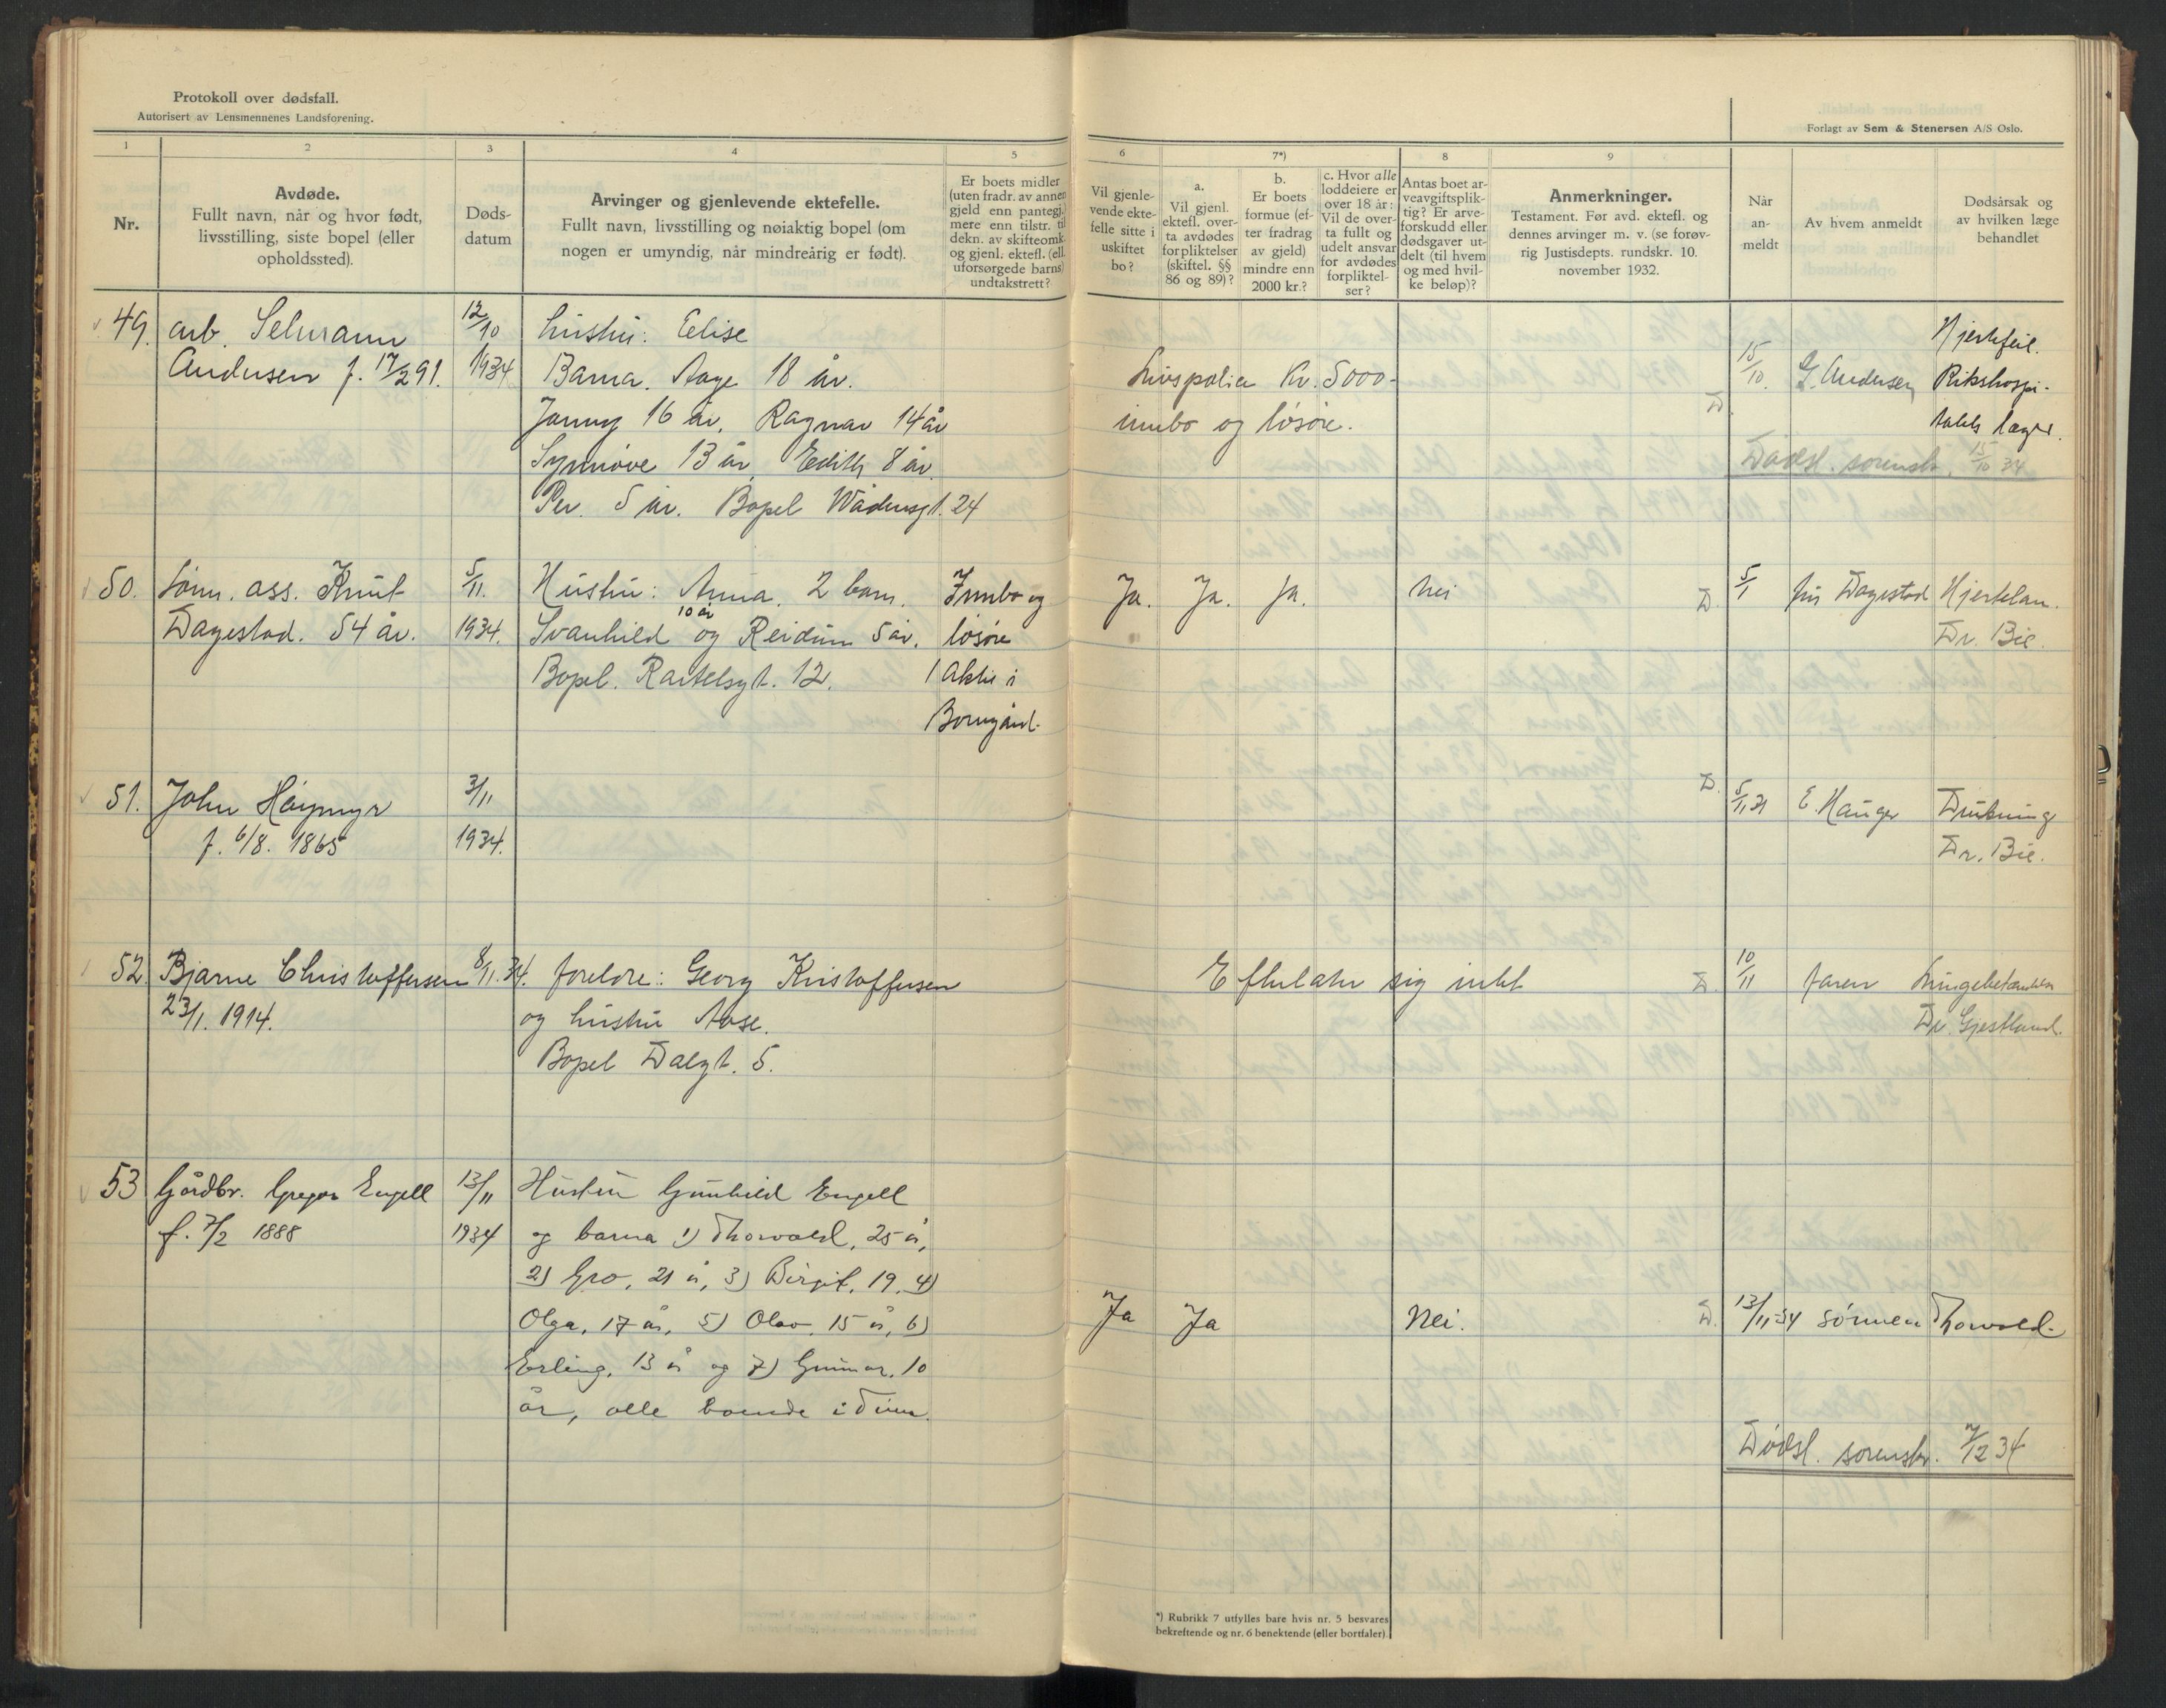 Protokoll over dødsfall.
Autorisert av Lensmennenes Landsforening.
Forlagt av Sem & Stenersen A/S Oslo.
1 2 3 4 5 6 7*) 8 9
Nr.
Avdøde.
Fullt navn, når og hvor født,
livsstilling, siste bopel (eller
opholdssted).
Døds-
datum
Arvinger og gjenlevende ektefelle.
Fullt navn, livsstilling og nøiaktig bopel (om
nogen er umyndig, når mindreårig er født).
Er boets midler
(uten fradr. av annen
gjeld enn pantegj.)
mere enn tilstr. til
dekn. av skifteomk.
og gjenl. ektefl. (ell.
uforsørgede barns)
undtakstrett?
Vil gjenle-
vende ekte-
felle sitte i
uskiftet
bo?
a.
Vil gjenl.
ektefl. over-
ta avdødes
forpliktelser
(skiftel. §§
86 og 89)?
b.
Er boets
formue (ef-
ter fradrag
av gjeld)
mindre enn
2000 kr.?
c. Hvor alle
loddeiere er
over 18 år:
Vil de over-
ta fullt og
udelt ansvar
for avdødes
forpliktel-
ser?
Antas boet ar-
veavgiftsplik-
tig? Er arve-
forskudd eller
dødsgaver ut-
delt (til hvem
og med hvil-
ke beløp)?
Anmerkninger.
Testament. Før avd. ektefl. og
dennes arvinger m. v. (se forøv-
rig Justisdepts. rundskr. 10.
november 1932.
Når
an-
meldt
Av hvem anmeldt
Dødsårsak og
av hvilken læge
behandlet
49. arb. Selmann
Andersen f. 17/2 91.
12/10
1934
hustru: Elise
Barna. Aage 18 år.
Jenny 16 år. Ragnar 14 år
Synnøve 13 år Edith 8 år
Per 5 år. Bopel Wadensgt. 24
Livspolise kr. 5000-
innbo og løsøre.
D.
15/10. G. Andersen
Hjertefeil.
Rikshospi-
talets læger.
Dødsl. sorenskr. 15/10 34
50. form. ass. Knut
Dagestad. 54 år.
5/11.
1934.
Hustru: Anna. 2 barn.
Svanhild 10 år og Reidun 5 år.
Bopel. Rastelsgt. 12.
Innbo og
løsøre
1 aktie i
Borngård.
Ja. Ja. ja. nei
D. 5/1 fru Dagestad Hjertelam.
Dr. Bie.
51. John Høymyr
f. 6/8. 1865
3/11
1934.
D. 5/11 34 E. Hauger Drukning
Dr. Bie.
52. Bjarne Christoffersen
23/1. 1914.
8/11. 34.
foreldre: Georg Kristoffersen
og hustru Aase.
Bopel Dalgt. 5.
Efterlater sig intet
D. 10/11 faren Lungebetændelse
Dr. Gjestland.
53 Gårdbr. Gregar Engell
f. 7/2 1888
13/11
1934
Hustru Gunhild Engell
og barna 1) Thorvald, 25 år,
2) Gro, 21 år, 3) Birgit, 19. 4)
Olga, 17 år, 5) Olav, 15 år, 6)
Erling, 13 år og 7) Gunnar, 10
år, alle boende i
Ja Ja Nei.
D. 13/11-34 sønnen Thorvald.
Dødsl. sorenskr. 7/12 34
*) Rubrikk 7 utfylles bare hvis nr. 5 besvares
bekreftende og nr. 6 benektende (eller bortfaler)